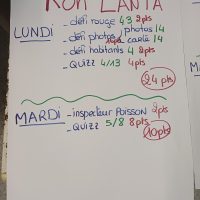 KOH LANTA
LUNDI
- défi rouge 43 2pts
- défi photos / photos 14
carte 14
- défi habitants 4 2pts
- Quizz 4/13 4pts
24 pts
MARDI - inspecteur Poisson 2pts
- Quizz 5/8 8pts
10pts